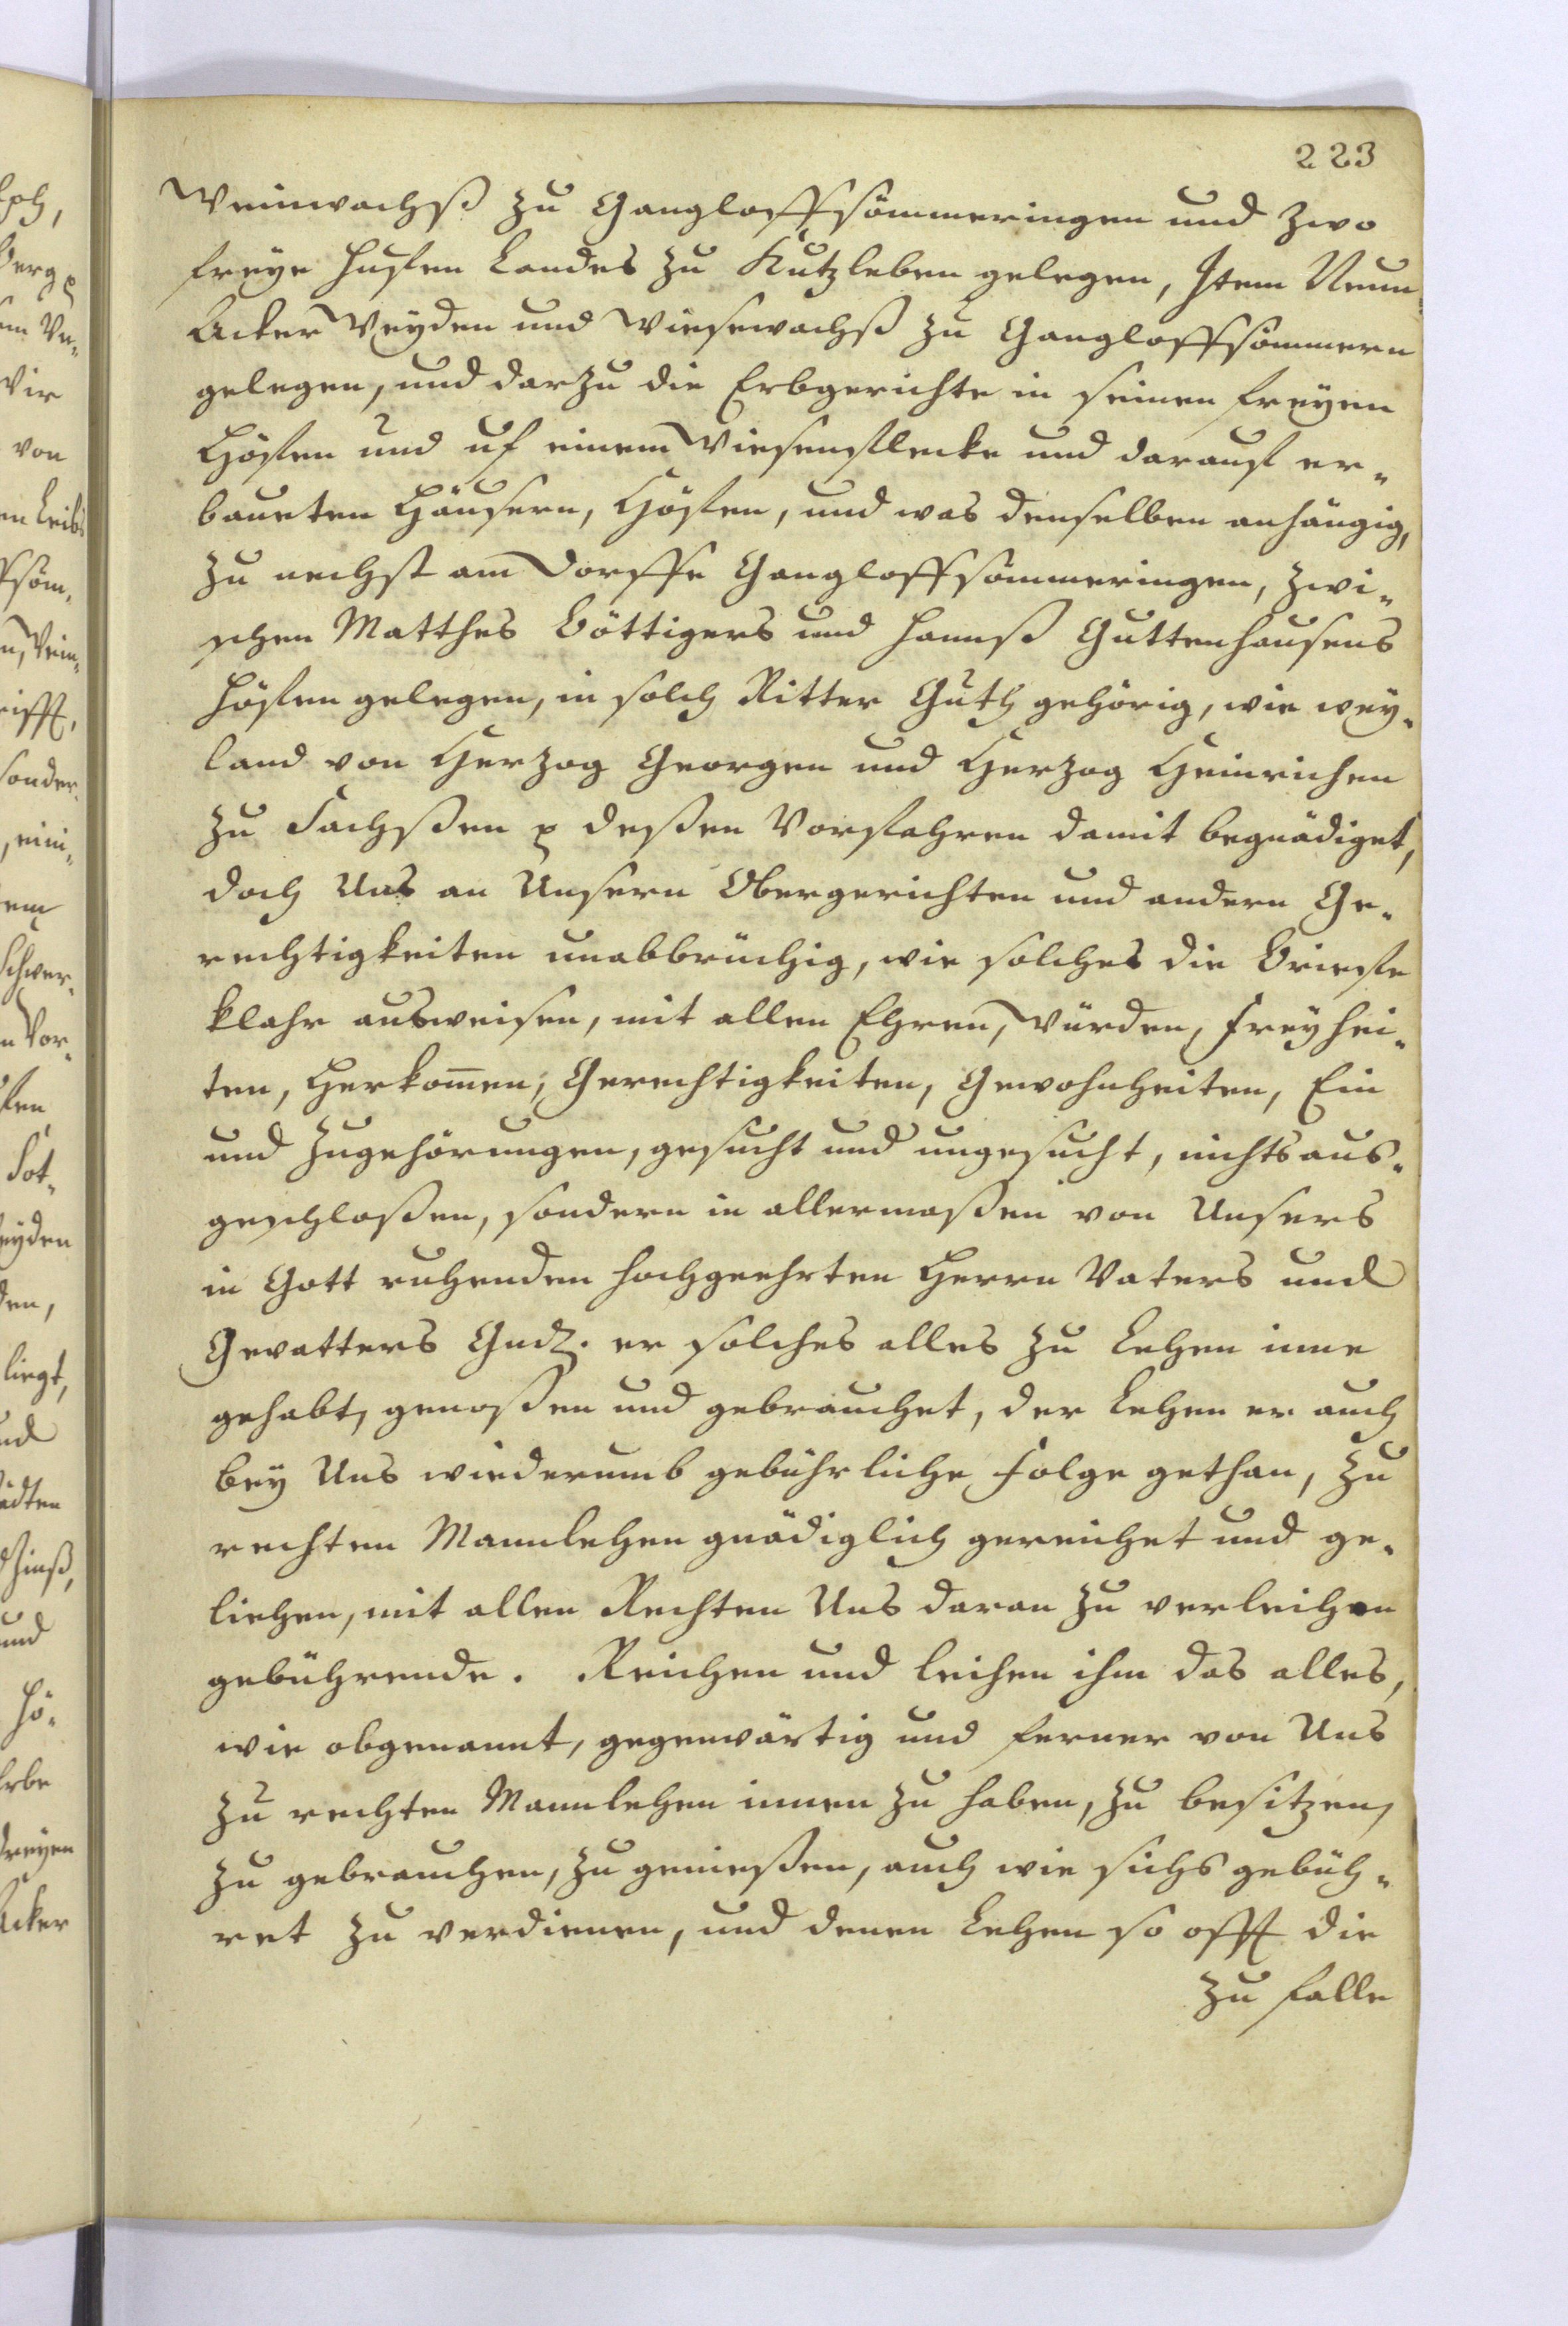 223
Weinwachß zu Gangloffsömmeringen und zwo
freye Hufen Landes zu Kutzleben gelegen, Item Neun
Acker Weyden und Wiesewachß zu Gangloffsömmern
gelegen, und darzu die Erbgerichte in seinen freyen
Höfen und uf einem Wiesenflecke und darauf er-
baueten Häusern, Höfen, und was denselben anhängig,
zu nechst am Dorffe Gangloffsömmeringen, zwi-
schen Matthes Böttigers und Hannß Guttenhausens
Höfen gelegen, in solch Ritter Guth gehörig, wie wey-
land von Herzog Georgen und Herzog Heinrichen
zu Sachßen p deßen Vorfahren damit begnädiget,
doch Uns an Unsern Obergerichten und andern Ge-
rechtigkeiten unabbrüchig, wie solches die Briefe
klahr ausweisen, mit allen Ehren, Würden, Freyhei-
ten, Herkom̃en, Gerechtigkeiten, Gewohnheiten, Ein
und Zugehörungen, gesucht und ungesucht, nichts aus-
geschloßen, sondern in allermaßen von Unsers
in Gott ruhenden hochgeehrten Herrn Vaters und
Gevatters Gnd. er solches alles zu Lehen inne
gehabt, genoßen und gebrauchet, der Lehen er auch
bey Uns wiederumb gebührliche Folge gethan, zu
rechten Mannlehen gnädiglich gereichet und ge-
liehen, mit allen Rechten Uns daran zu verleihen
gebührende. Reichen und leihen ihm das alles,
wie obgenannt, gegenwärtig und ferner von Uns
zu rechten Mannlehen innen zu haben, zu besitzen,
zu gebrauchen, zu genießen, auch wie sichs gebüh-
ret zu verdienen, und denen Lehen so offt die
zu falle